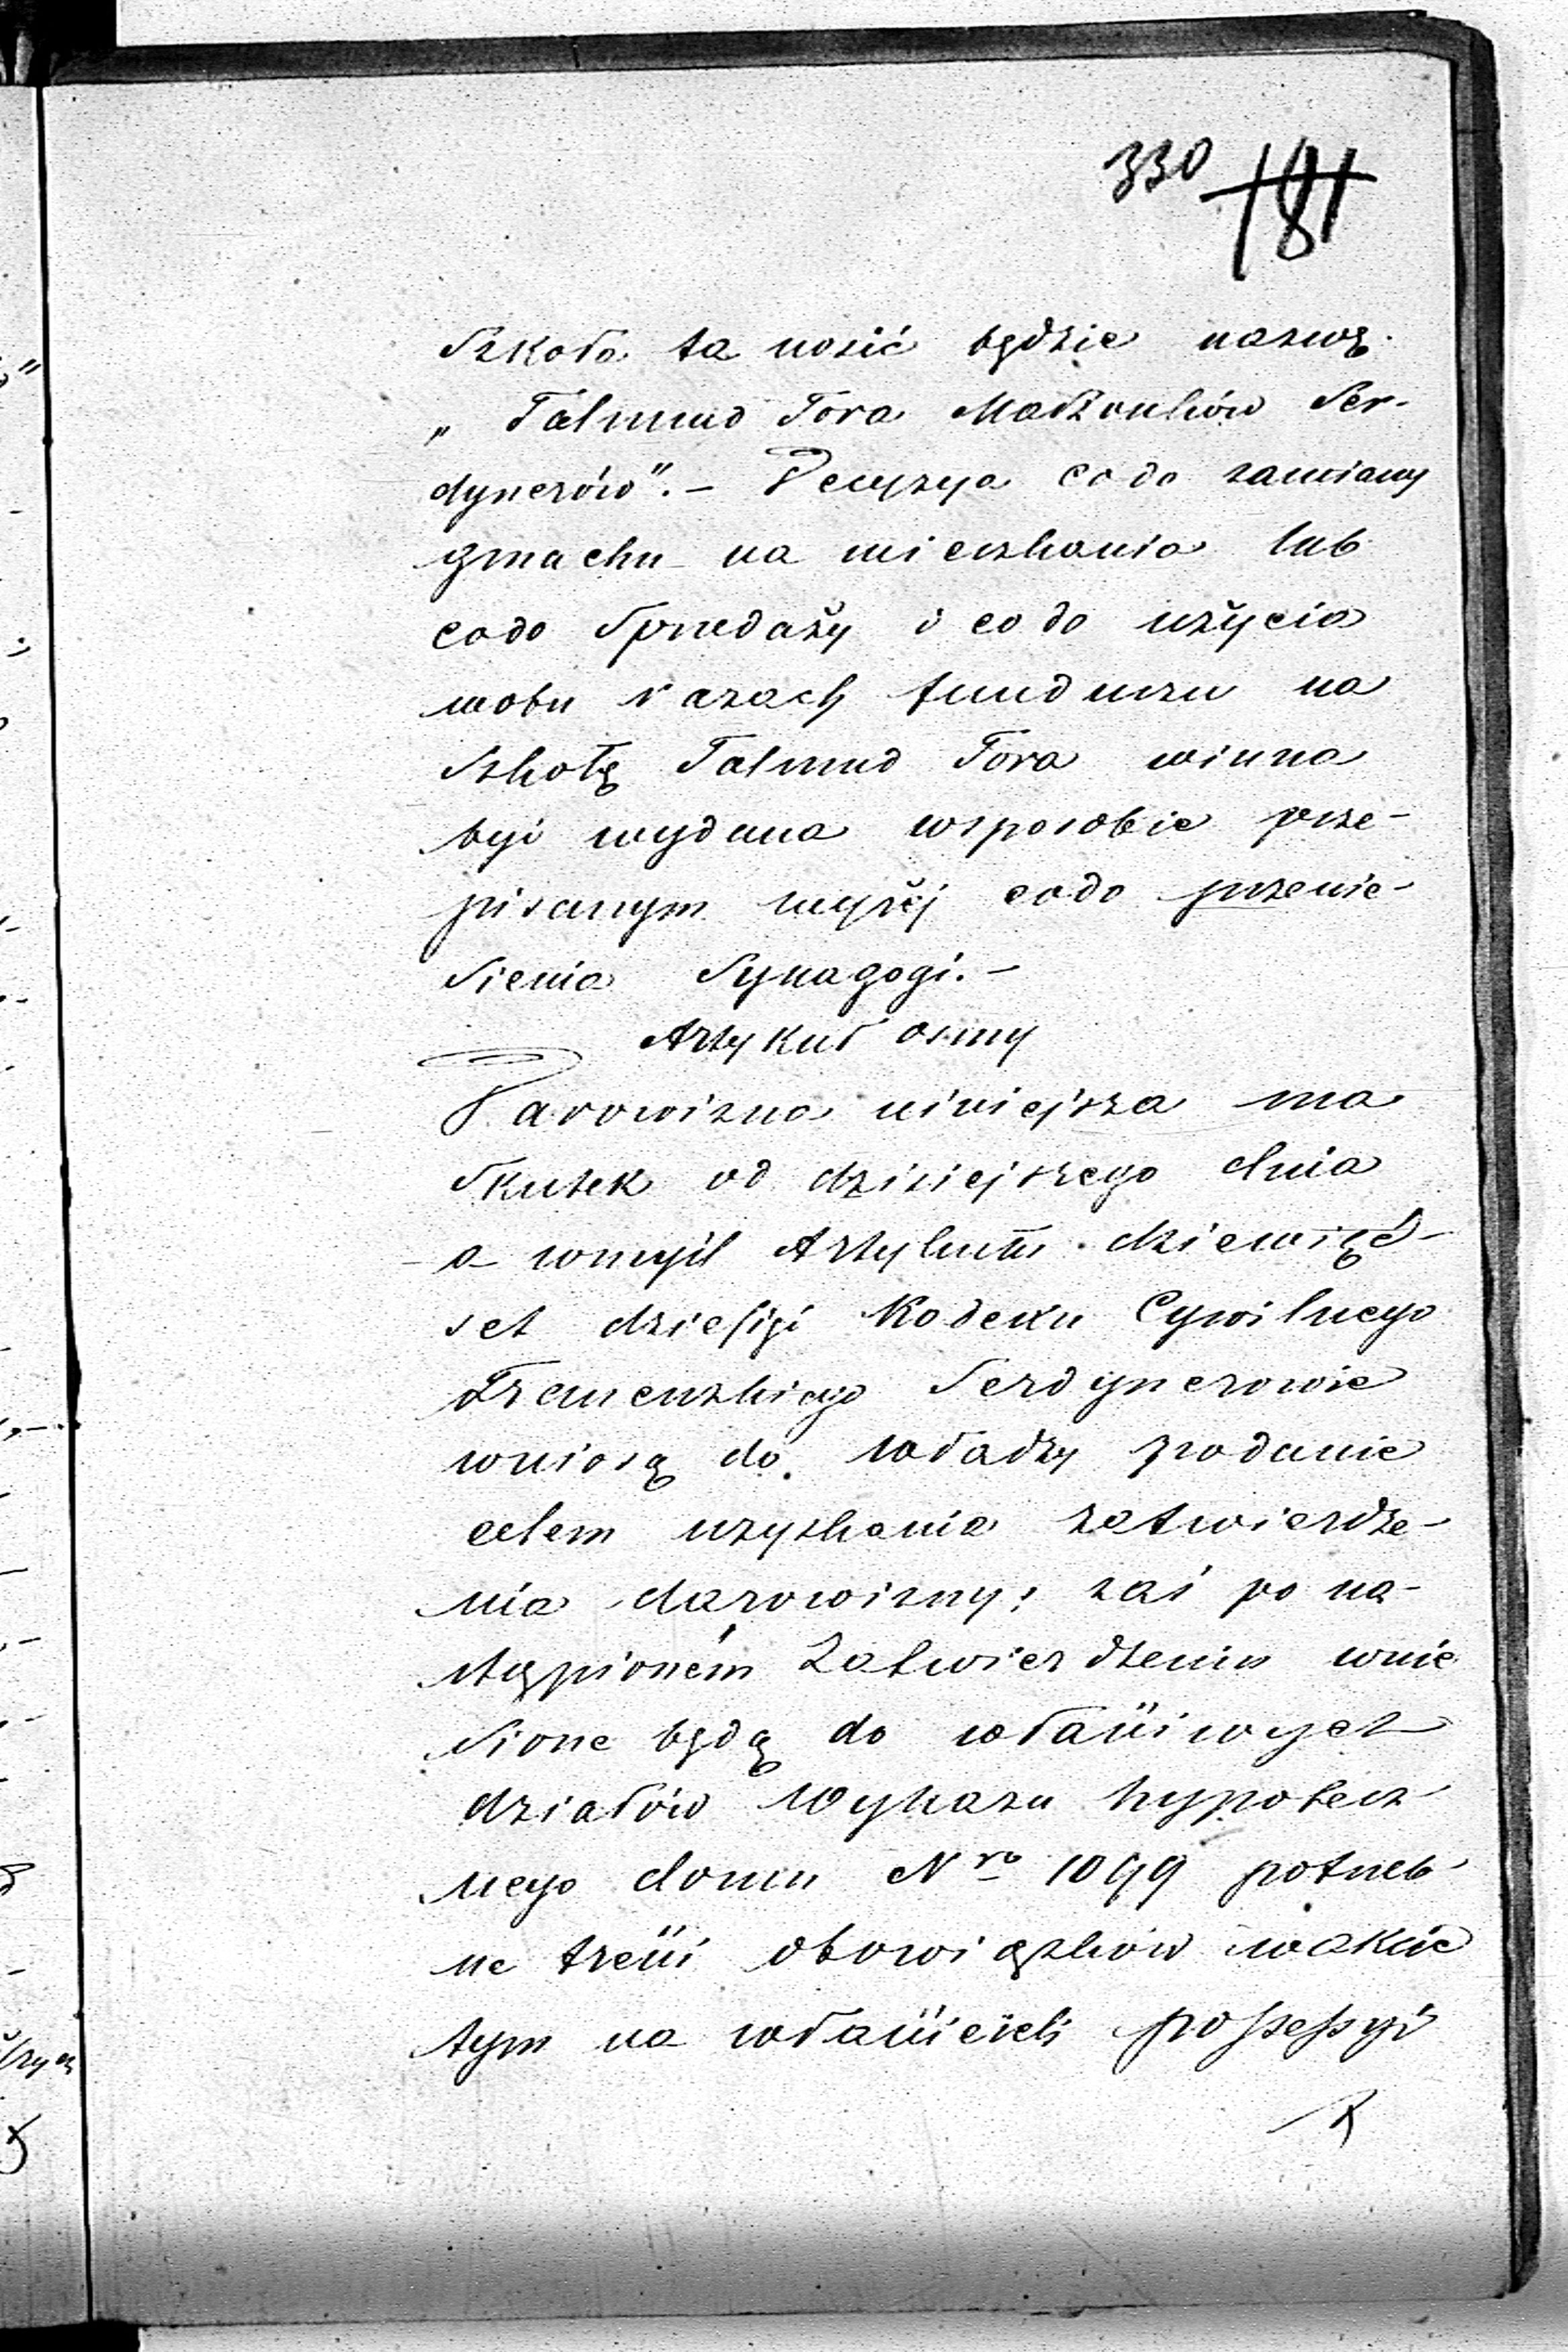 330 181
Szkoła ta nosić będzie nazwę
„Talmud Tora Małżonków Ser-
dynerów”.- Decyzya co do zamiany
gmachu na mieszkania lub
codo Sprzedaży i co do użycia
wobu razach funduszu na
Szkołę Talmud Tora winna
być wydana wsposobie prze-
pisanym wyżej codo przenie-
sienia Synagogi.-
Artykuł osmy
Darowizna niniejsza ma
Skutek od dzisiejszego dnia
a wmyśl Artykułu dziewięć-
set dziesięć Kodexu Cywilnego
Francuzkiego Serdynerowie
wniosą do władzy podanie
celem uzyskania zatwierdze-
nia darowizny; zaś po na-
stąpioném Zatwierdzeniu wnie
sione będą do właściwych
działów Wykazu hypotecz-
nego domu Nro 1099 potrzeb-
ne treści obowiązków wakcie
tym na właścicieli possessyi